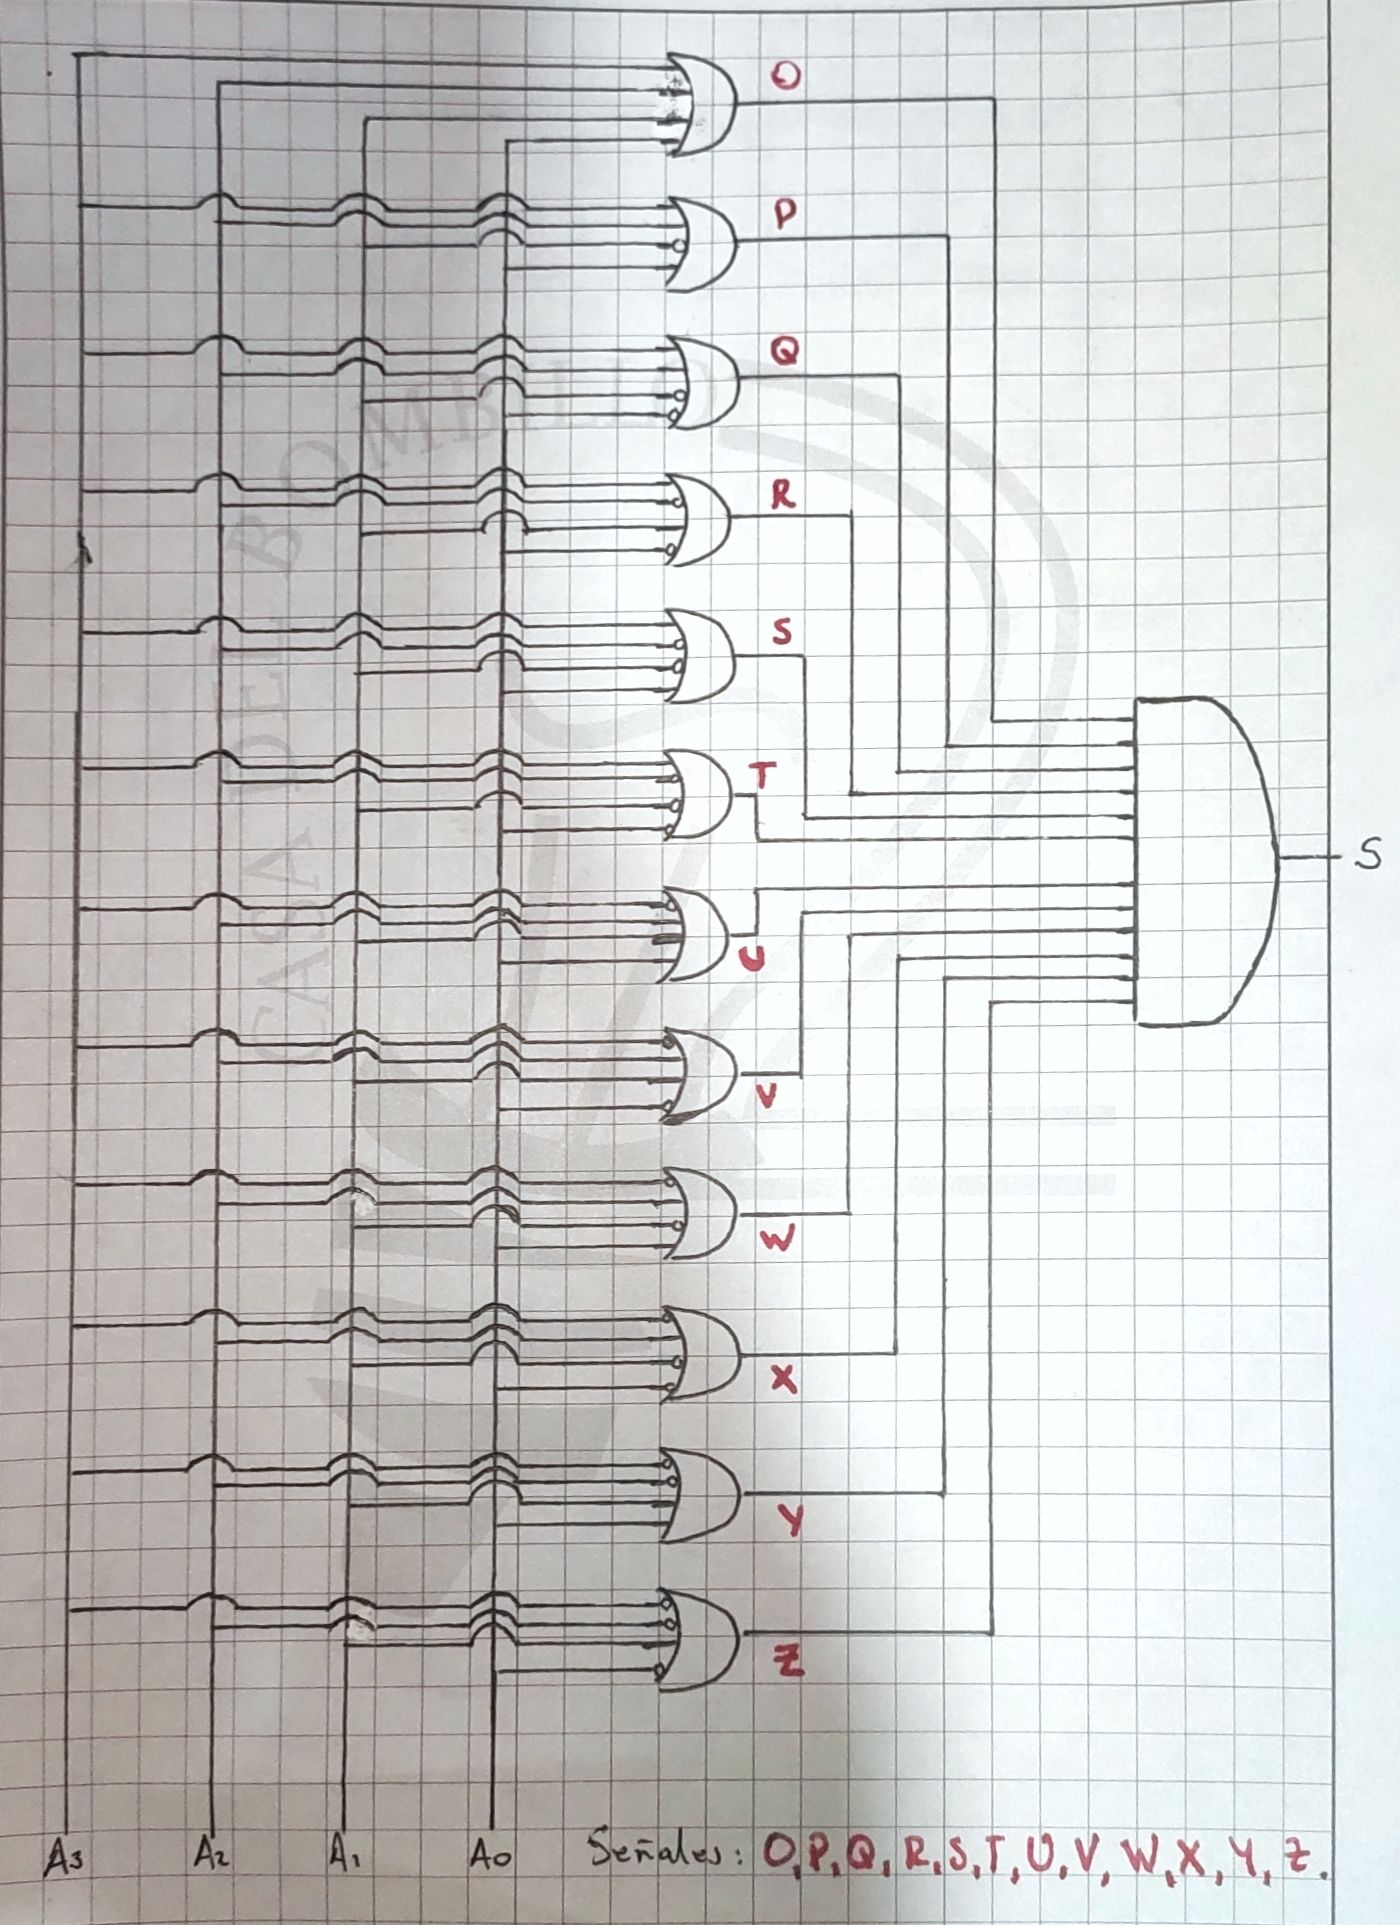 O
P
Q
R
S
T
U
V
W
X
Y
Z
S
A3 A2 A1 A0 Señales: O, P, Q, R, S, T, U, V, W, X, Y, Z.
CASA DEL BOMBILLO